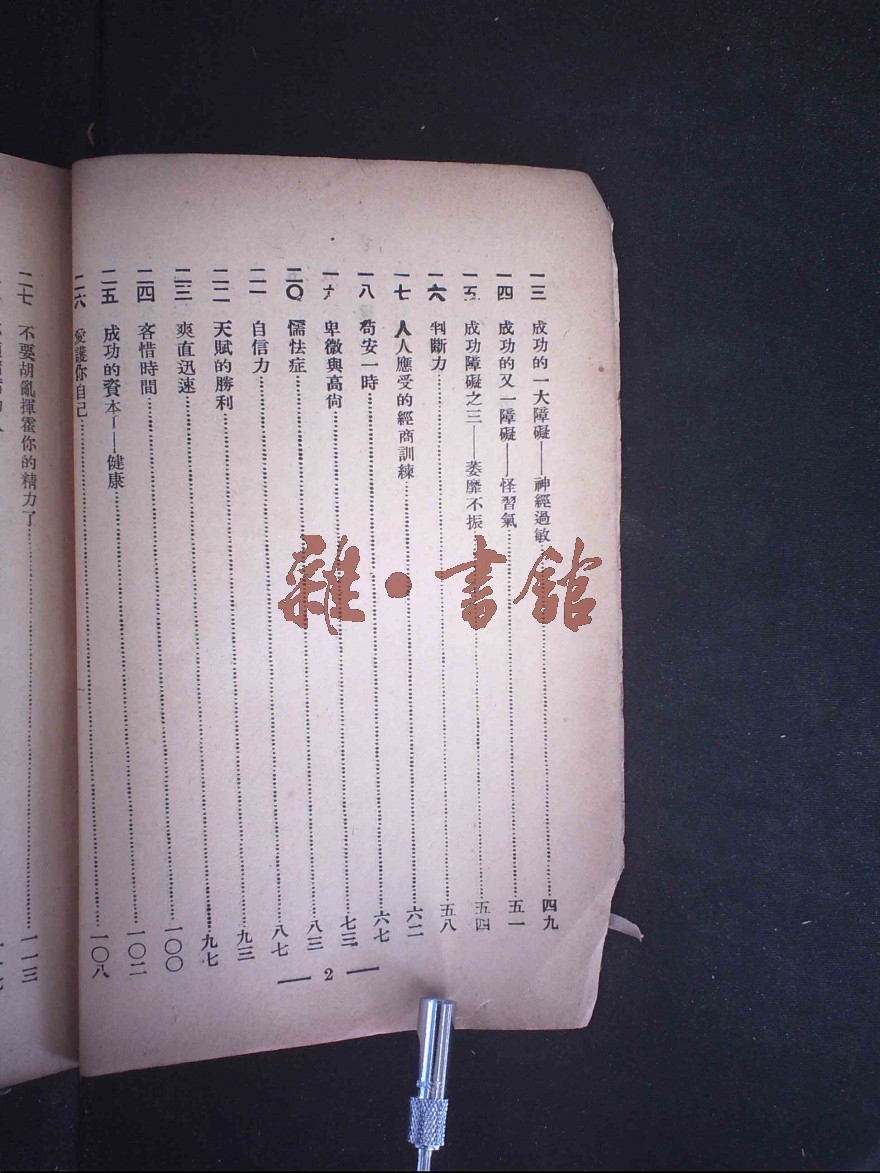 一三　成功的一大障礙——神經過敏……四九
一四　成功的又一障礙——怪習氣……五一
一五　成功障礙之三——萎靡不振……五四
一六　判斷力……五八
一七　人人應受的經商訓練……六二
一八　苟安一時……六七
一九　卑微與高尙……七三
二〇　懦怯症……八三
二一　自信力……八七
二二　天賦的勝利……九三
二三　爽直迅速……九七
二四　吝惜時間……一〇〇
二五　成功的資本——健康……一〇二
二六　愛護你自己……一〇八
— 2 —
二七　不要胡亂揮霍你的精力了……一一三
雜·書館